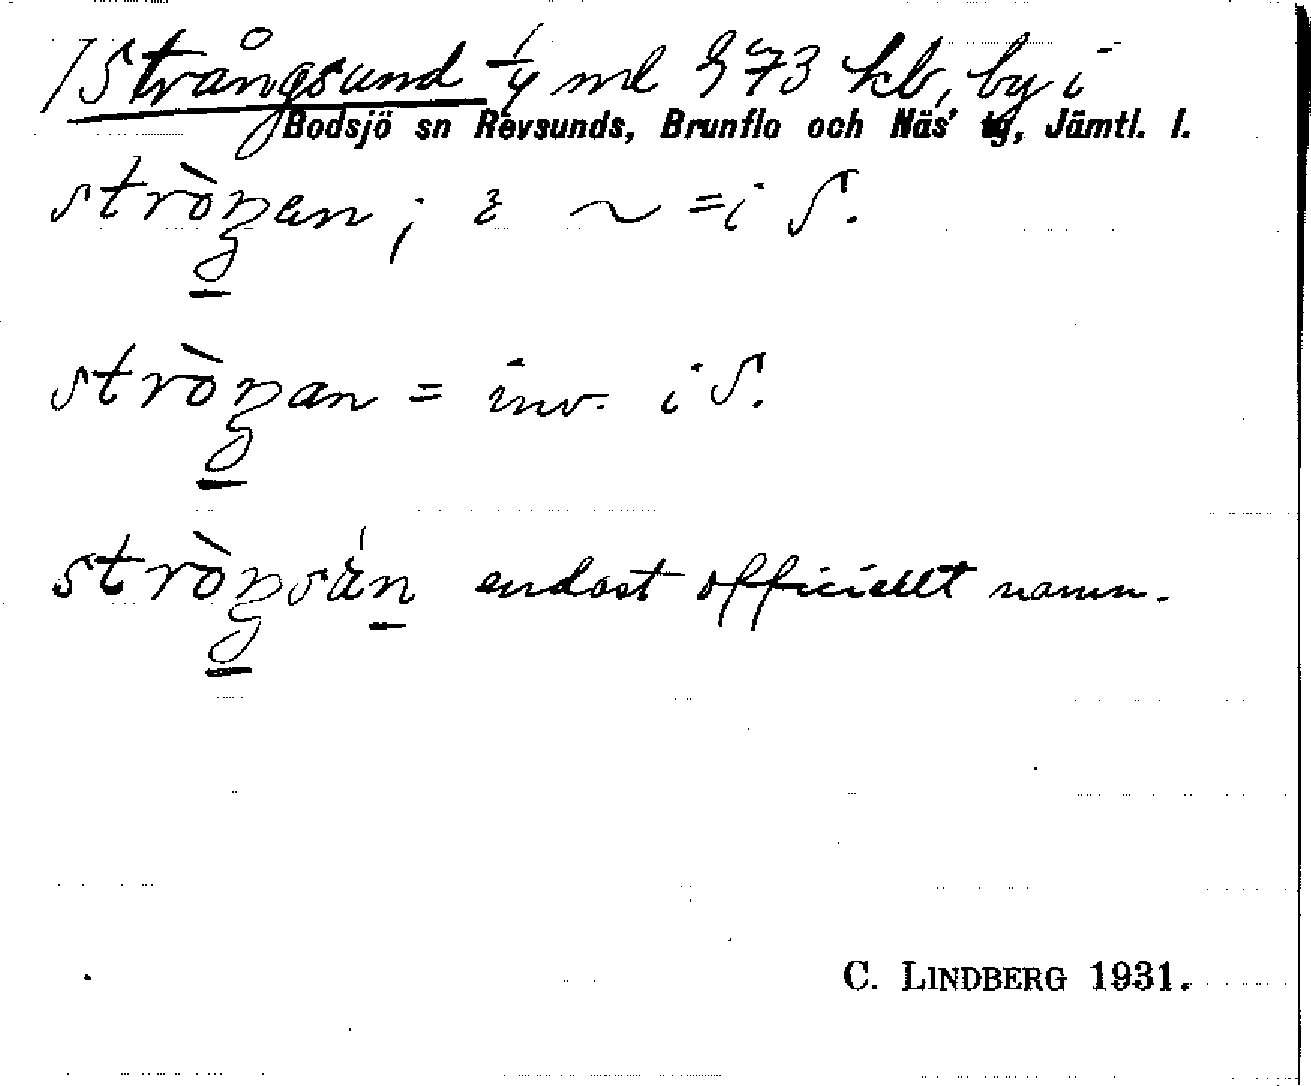 Strångsund 1/4 ml § 73 kb, by i
Bodsjö sn Revsunds, Brunflo och Näs' tg, Jämtl. l.
stròŋen; ~ = i S.
stròŋan = inv. i S.
stròŋsún endast officiellt namn.
C. LINDBERG 1931.